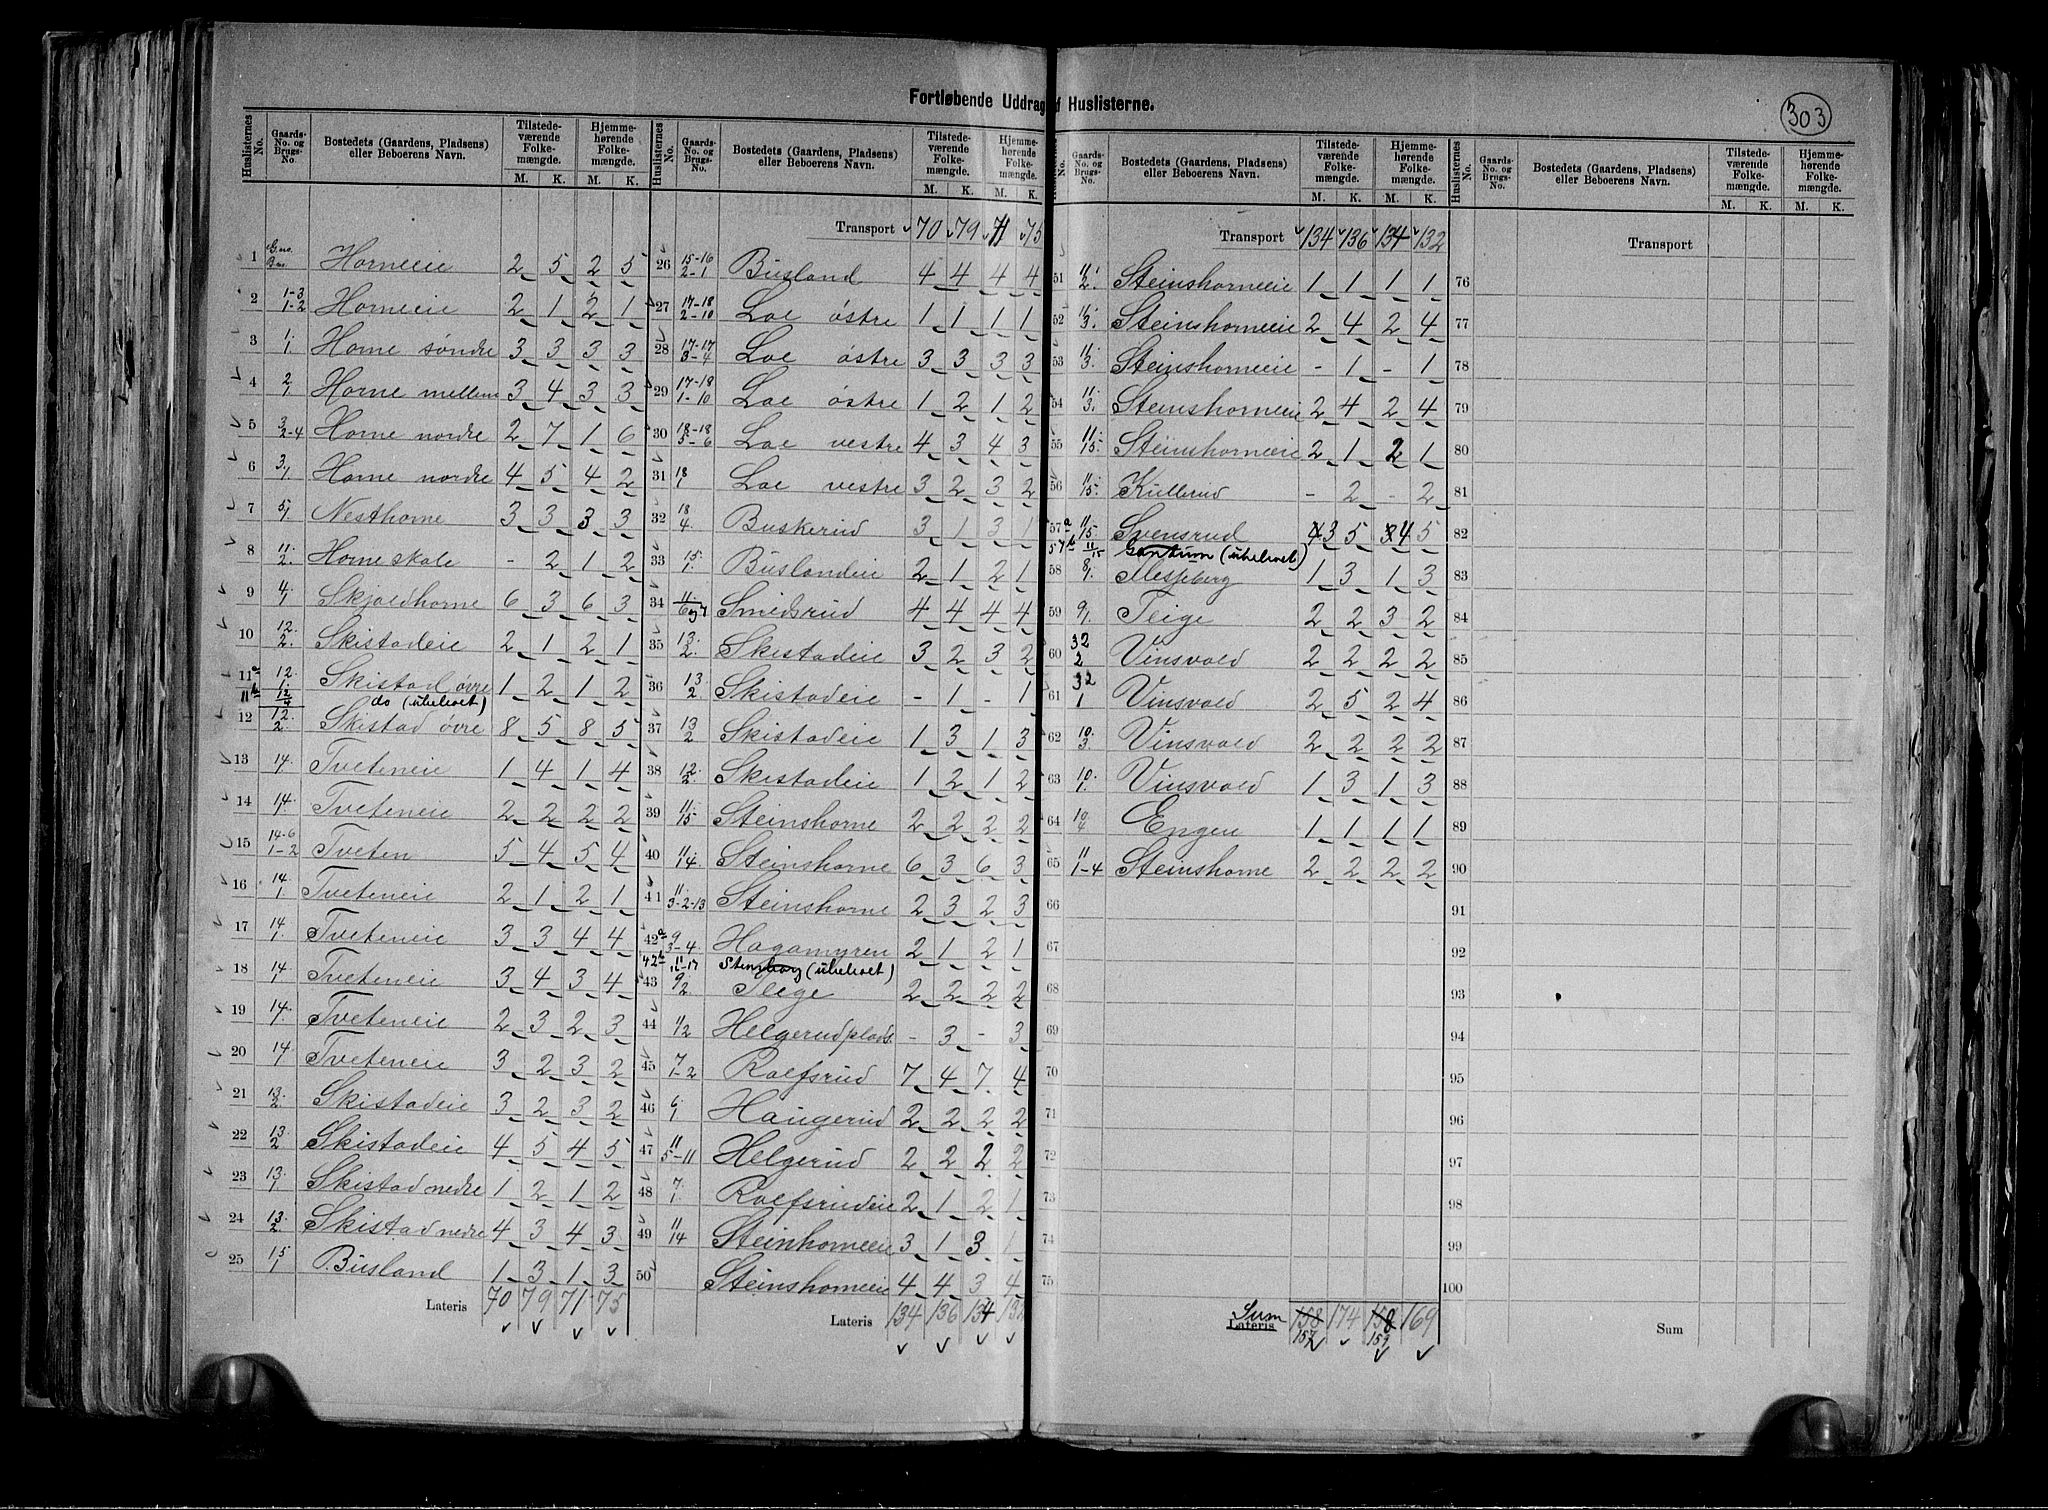 Fortløbende Uddrag af Huslisterne.
303
Huslisternes No. | Gaards-No. og Brugs-No. | Bostedets (Gaardens, Pladsens) eller Beboerens Navn. | Tilstedeværende Folkemængde. M. K. | Hjemmehørende Folkemængde. M. K.
1 G.no. B.no. Horneeie 2 5 2 5
2 1-3 1-2 Horneeie 2 1 2 1
3 1/1 Horne søndre 3 3 3 3
4 2/1 Horne mellem 3 4 3 3
5 3/2-4 Horne nordre 2 7 1 6
6 3/1 Horne nordre 4 5 4 2
7 5/1 Nesthorne 3 3 3 3
8 11/2 Horneskole - 2 1 2
9 4/1 Skjoldhorne 6 3 6 3
10 12/2 Skistadeie 2 1 2 1
11a 12/1 Skistad øvre 1 2 1 2
11b 12/4 do (ubeboet)
12 12/2 Skistad øvre 8 5 8 5
13 14 Tveteneie 1 4 1 4
14 14/1 Tveteneie 2 2 2 2
15 14-6 1-2 Tveten 5 4 5 4
16 14/1 Tveteneie 2 1 2 1
17 14/1 Tveteneie 3 3 4 4
18 14/1 Tveteneie 3 4 3 4
19 14/1 Tveteneie 2 3 2 3
20 14/1 Tveteneie 3 2 3 2
21 13/2 Skistadeie 3 2 3 2
22 13/2 Skistadeie 4 5 4 5
23 13/1 Skistad nedre 1 2 1 2
24 13/2 Skistad nedre 4 3 4 3
25 15/1 Busland 1 3 1 3
Lateris 70 79 71 75
Huslisternes No. | Gaards-No. og Brugs-No. | Bostedets (Gaardens, Pladsens) eller Beboerens Navn. | Tilstedeværende Folkemængde. M. K. | Hjemmehørende Folkemængde. M. K.
Transport 70 79 71 75
26 15-16 2-1 Busland 4 4 4 4
27 17-18 2-10 Loe østre 1 1 1 1
28 17-17 3-4 Loe østre 3 3 3 3
29 17-18 1-10 Loe østre 1 2 1 2
30 18-18 5-6 Loe vestre 4 3 4 3
31 18/1 Loe vestre 3 2 3 2
32 18/4 Buskerud 3 1 3 1
33 15/1 Buslandeie 2 1 2 1
34 11/6 og 7 Smedsrud 4 4 4 4
35 13/2 Skistadeie 3 2 3 2
36 13/2 Skistadeie - 1 - 1
37 13/2 Skistadeie 1 3 1 3
38 12/2 Skistadeie 1 2 1 2
39 11/15 Steinshorne 2 2 2 2
40 11/14 Steinshorne 6 3 6 3
41 11/3-2-13 Steinshorne 2 3 2 3
42a 9/3-4 Hagamyren 2 1 2 1
42b 11-17 Stensborg (ubeboet)
43 9/2 Teige 2 2 2 2
44 11/2 Helgerudplads - 3 - 3
45 7/1-2 Rolfsrud 7 4 7 4
46 6/1 Haugerud 2 2 2 2
47 11/5-11 Helgerud 2 2 2 2
48 7/1 Rolfsrudeie 2 1 2 1
49 11/14 Steinhorneeie 3 1 3 1
50 Steinshorneeie 4 4 3 4
Lateris 134 136 134 132
No. | Gaards-No. og Brugs-No. | Bostedets (Gaardens, Pladsens) eller Beboerens Navn. | Tilstedeværende Folkemængde. M. K. | Hjemmehørende Folkemængde. M. K.
Transport 134 136 134 132
51 11/2 Steinshorneeie 1 1 1 1
52 11/3 Steinshorneeie 2 4 2 4
53 11/3 Steinshorneeie - 1 - 1
54 11/3 Steinshorneeie 2 4 2 4
55 11/15 Steinshorneeie 2 1 2 1
56 11/15 Kullerud - 2 - 2
57a 11/15 Svensrud 4 3 5 3 4 5
57b 11/15 (ubeboet)
58 8/1 Messeberg 1 3 1 3
59 9/1 Teige 2 2 3 2
60 32/2 Vinsvold 2 2 2 2
61 32/1 Vinsvold 2 5 2 4
62 10/3 Vinsvold 2 2 2 2
63 10/1 Vinsvold 1 3 1 3
64 10/4 Engen 1 1 1 1
65 11/1-4 Steinshorne 2 2 2 2
66
67
68
69
70
71
72
73
74
75
Sum Lateris 158 174 158 169
157 157
Huslisternes No. | Gaards-No. og Brugs-No. | Bostedets (Gaardens, Pladsens) eller Beboerens Navn. | Tilstedeværende Folkemængde. M. K. | Hjemmehørende Folkemængde. M. K.
Transport
76
77
78
79
80
81
82
83
84
85
86
87
88
89
90
91
92
93
94
95
96
97
98
99
100
Sum